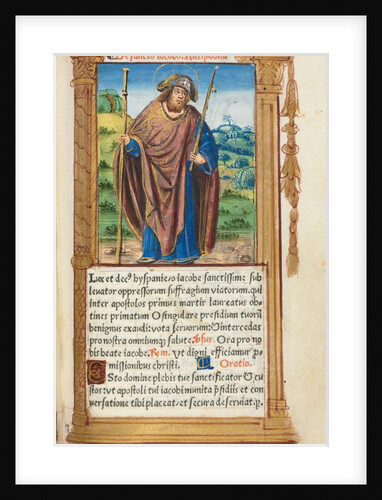 Lux et decꝰ hyspanie sc̄e iacobe sanctissime sub
leuator oppressorum suffragiũ viatorum. qui
inter apostolos primus martir laureatus ob
tines primatum O singulare presidium tuorũ
benignus exaudi: vota seruorum: Ointercedas
pro nostra omniumqꝫ salute. v̄sus. Ora pro no
bis beate iacobe: Rem. Ut digni efficiamur p̲
missionibus christi. Oratio.
Esto domine plebis tue sanctificator & cu
stos: vt apostoli tui iacobi munita p̄sidiis et con
uersatione tibi placeat, et secura deseruiat. p̲.